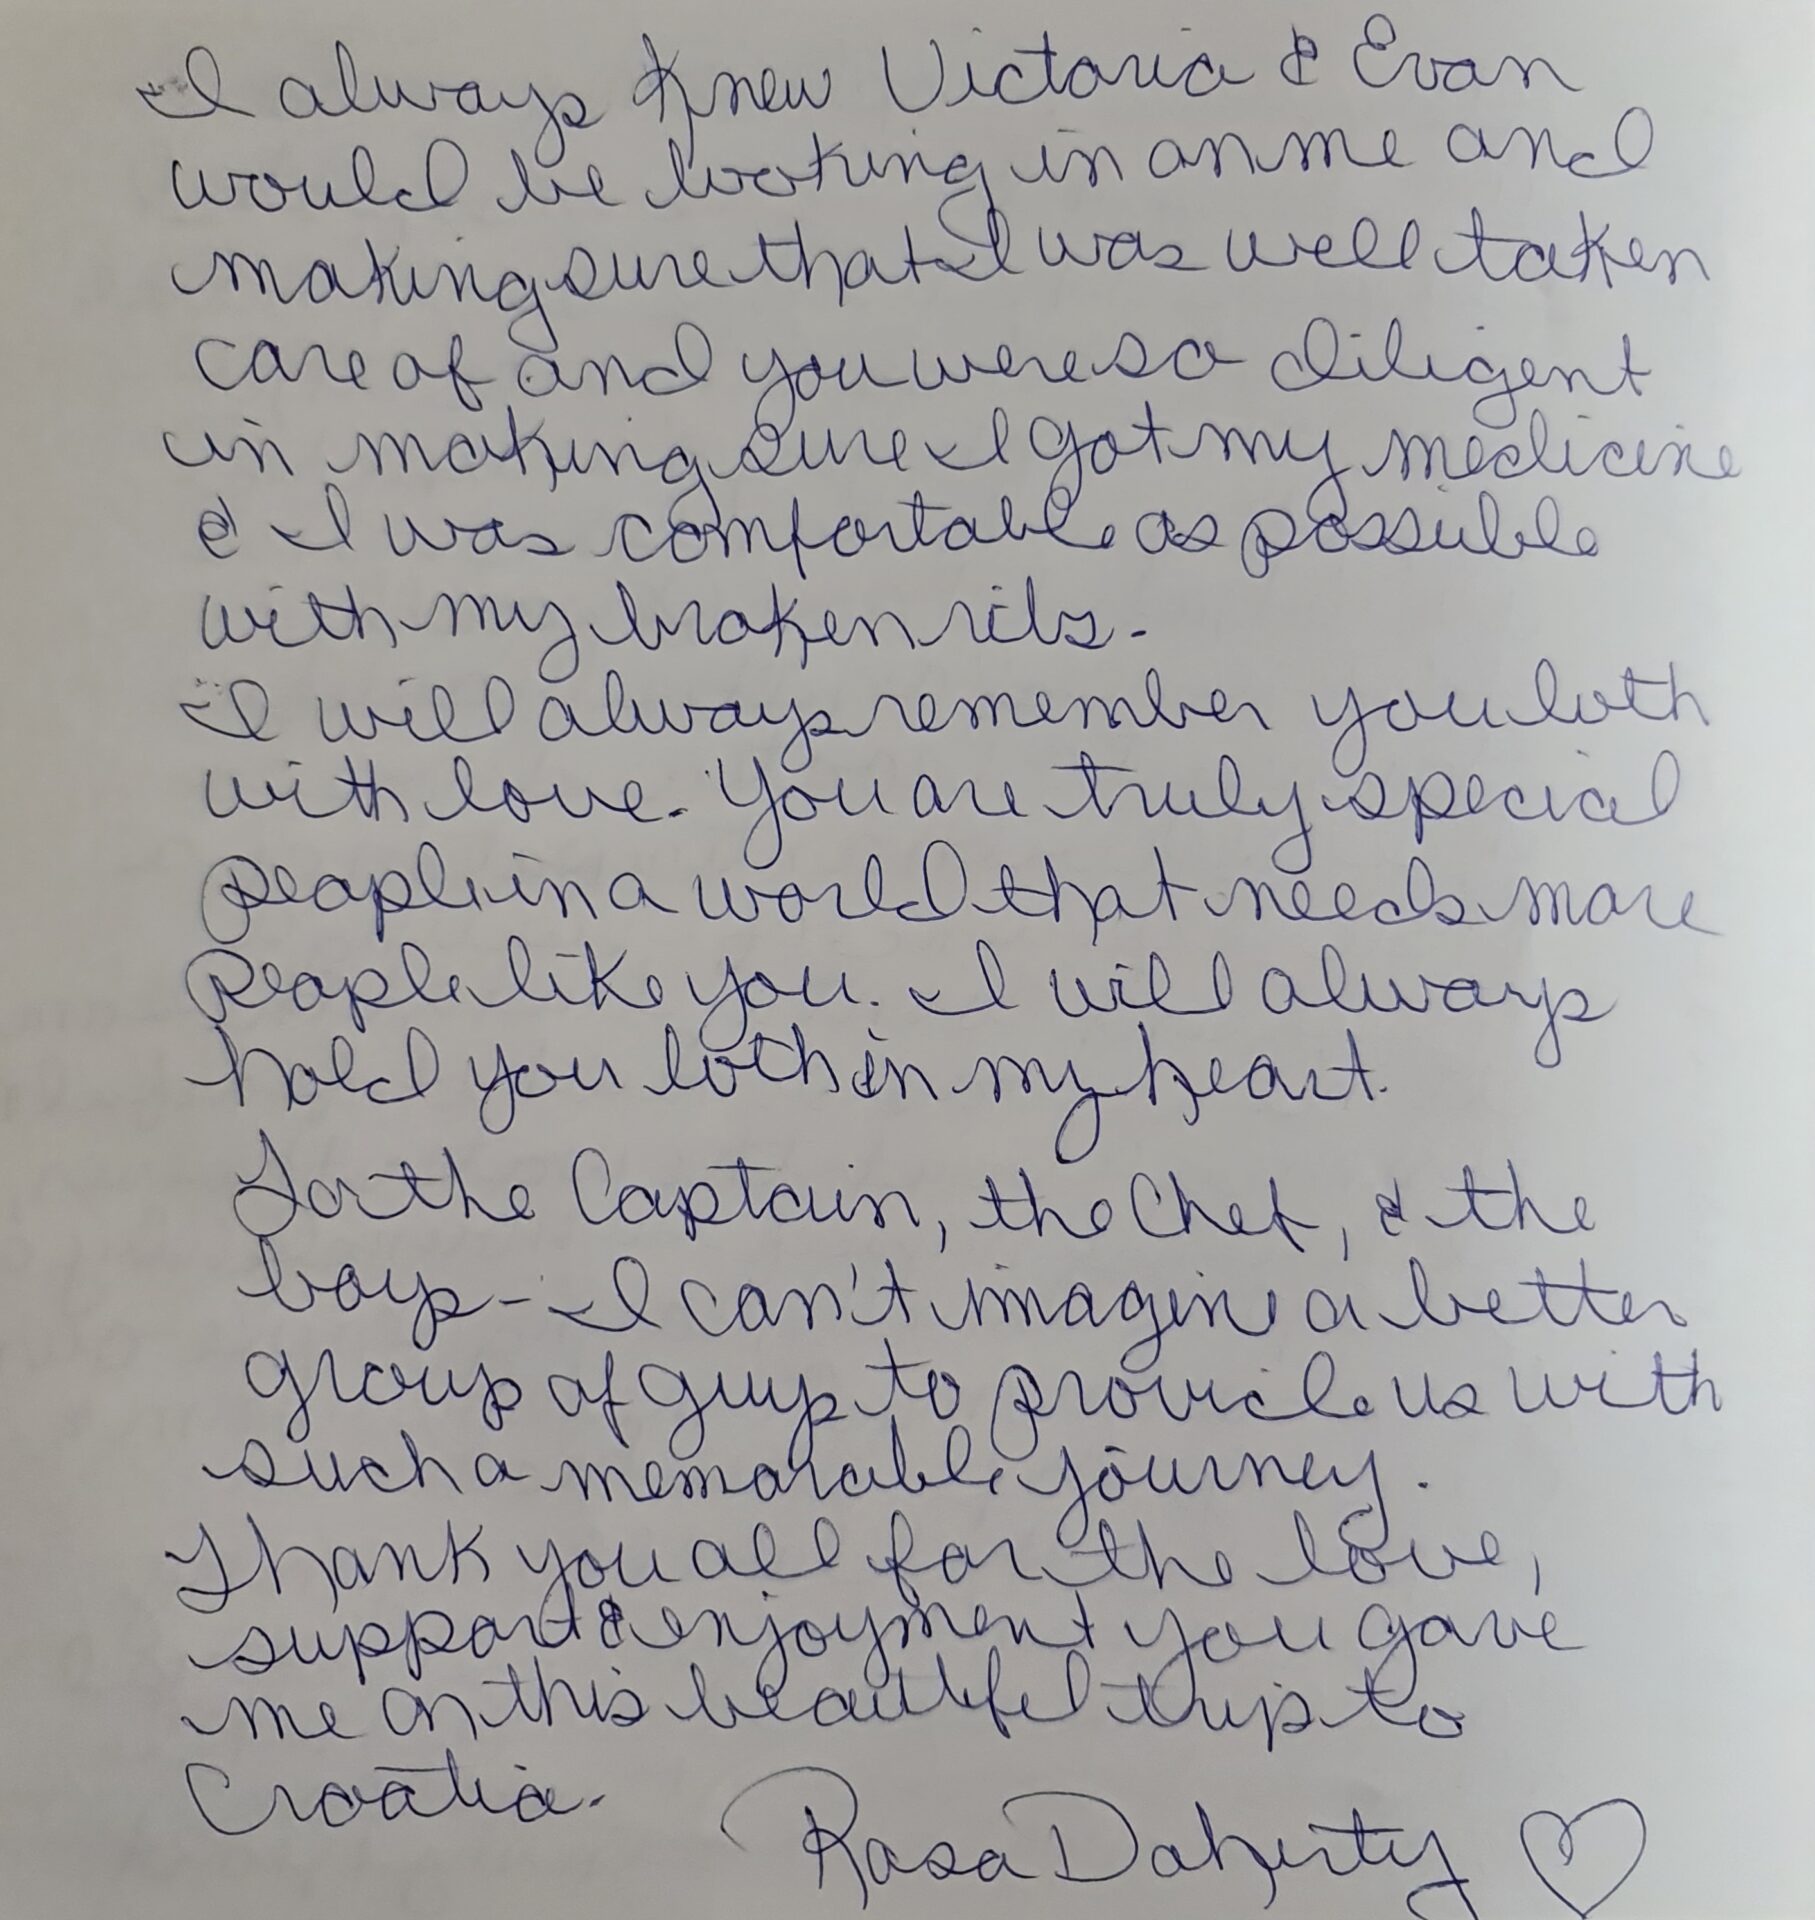 I always knew Victoria & Evan
would be looking in on me and
making sure that I was well taken
care of and you were so diligent
in making sure I got my medicine
& I was comfortable as possible
with my broken ribs.
I will always remember you both
with love. You are truly special
people in a world that needs more
people like you. I will always
hold you both in my heart.
For the Captain, the Chef, & the
boys - I can't imagine a better
group of guys to provide us with
such a memorable journey.
Thank you all for the love,
support & enjoyment you gave
me on this beautiful trip to
Croatia.
Rosa Doherty